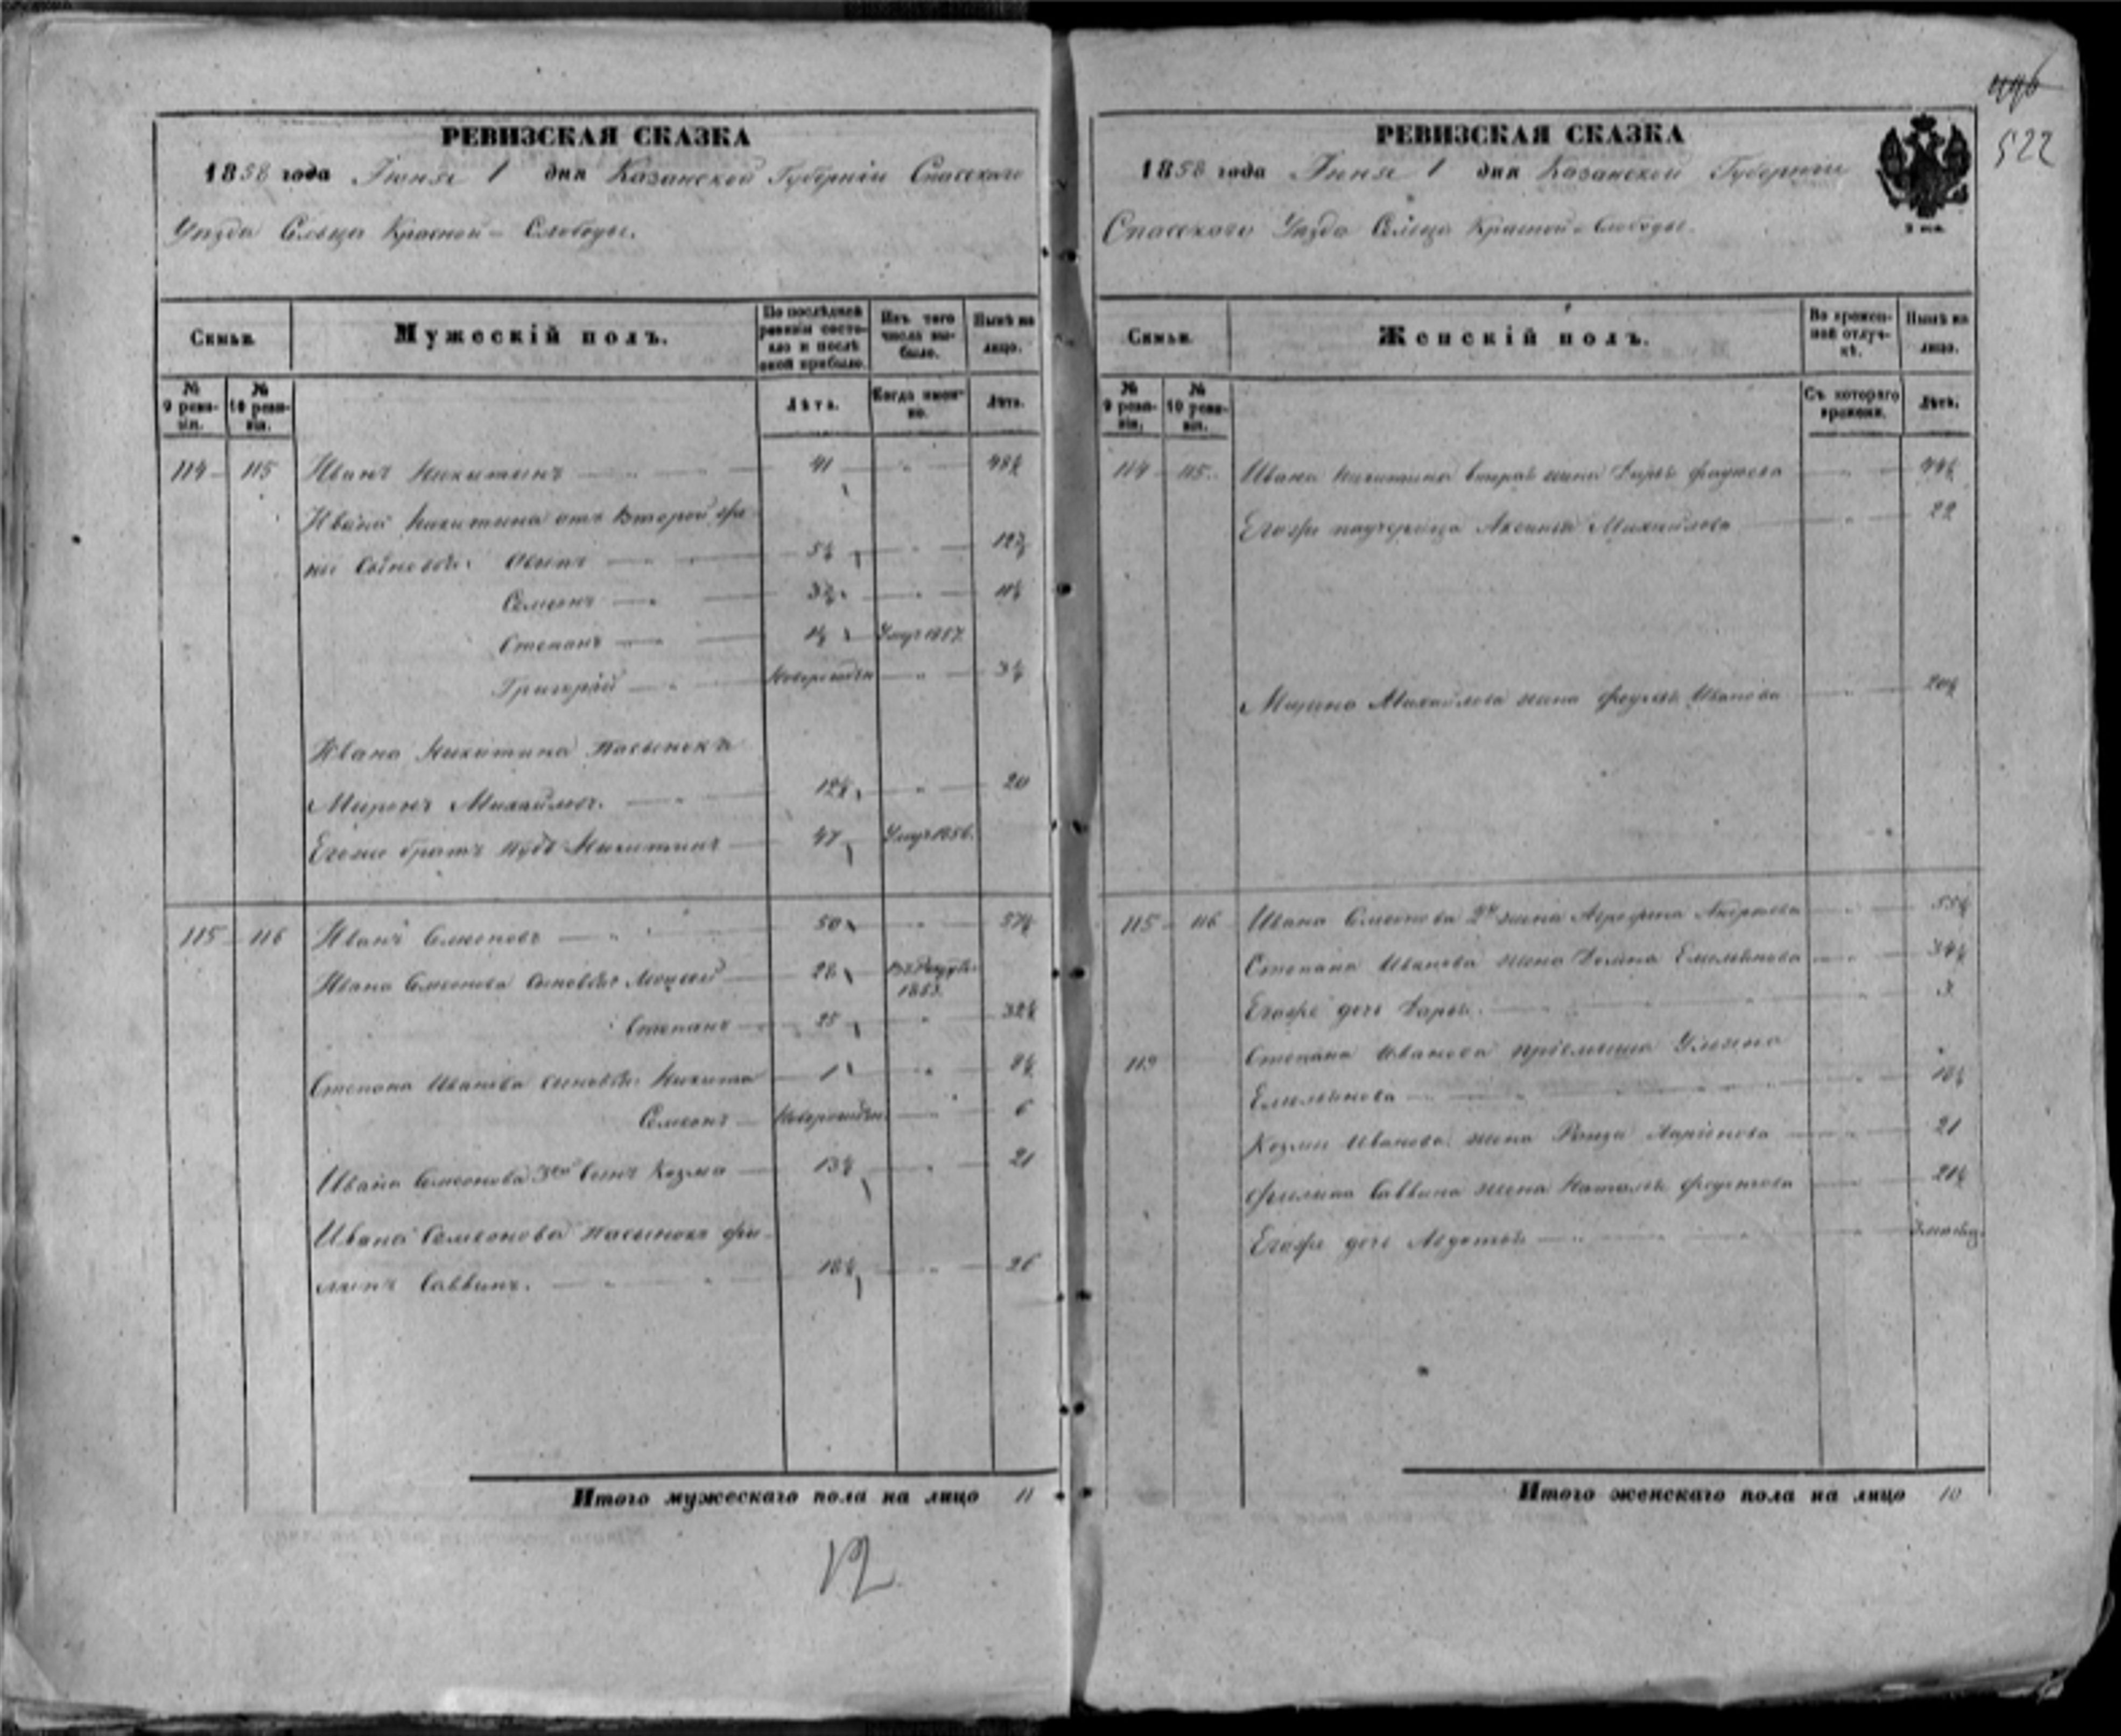 РЕВИЗСКАЯ СКАЗКА
1858 года Іюня 1 дня Казанской Губерніи Спасскаго
Уѣзда Сельца Красной-Слободы.
Семьи.
Мужескій полъ.
По послѣдней ревизіи состояло и послѣ оной прибыло.
Изъ того числа выбыло.
Нынѣ на лицо.
№ 9 ревизіи.
№ 10 ревизіи.
Лѣта.
Когда именно.
Лѣта.
114 115 Иванъ Никитинъ 41 48½
Ивана Никитина отъ второй же-
ны Сыновья: Осипъ 5½
Семенъ 11½
Степанъ Умеръ 1857.
Григорій Новорожден 3½
Ивана Никитина пасынокъ
Миронъ Михайловъ. 12½ 20
Егоже братъ Никитинъ 47 Умеръ 1856.
115 116 Иванъ Семеновъ 50 57½
Ивана Семенова Сыновья Моисей 26 Въ Рекруты 1853.
Степанъ 25 32½
Степана Иванова сыновья Никита 1 8½
Семенъ Новорожден. 6
Ивана Семенова 3ій Сынъ Козма 13½ 21
Ивана Семенова пасынокъ Фи-
липъ Саввинъ. 18½ 26
Итого мужескаго пола на лицо 11
12
РЕВИЗСКАЯ СКАЗКА
1858 года Іюня 1 дня Казанской Губерніи
Спасскаго Уѣзда Сельца Красной-Слободы.
446
522
Семьи.
Женскій полъ.
Во временной отлучкѣ.
Нынѣ на лицо.
№ 9 ревизіи.
№ 10 ревизіи.
Съ котораго времени.
Лѣта.
114 115 Ивана Никитина вторая жена Дарья 44½
Егоже падчерица Аксинья Михайлова 22
Михайлова жена Иванова 20½
115 116 Ивана Семенова 2я жена Агрофена 55½
Степана Иванова жена Емельянова 34½
Егоже дочь Дарья. 3
119 Степана Иванова пріемыша
Емельянова 16½
Козмы Иванова жена Ларіонова 21
Филипа Саввина жена Наталья 21½
Егоже дочь Авдотья
Итого женскаго пола на лицо 10